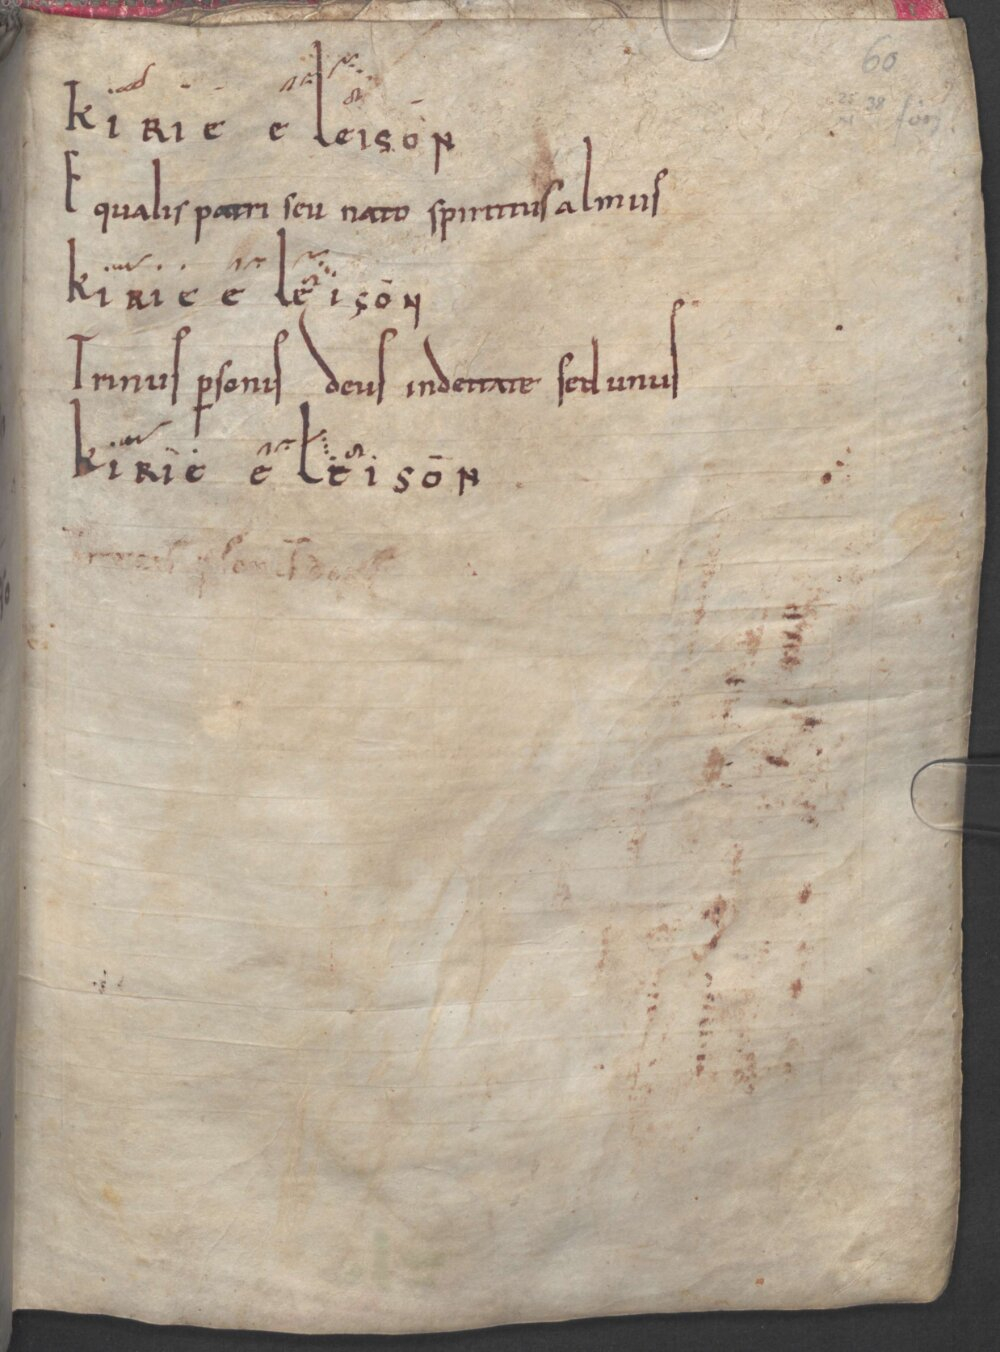 60
25 38
kiRie eleisoN
Equalis patri seu nato spiritus almus
kiRie eleisōN
Trinus psonis deus indeitate sed unus
kiRie eleisōN